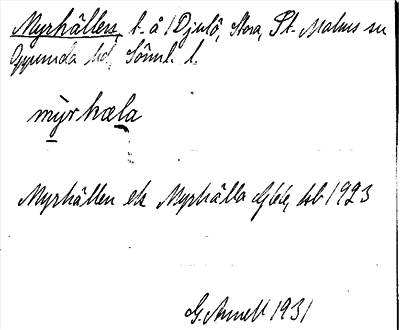 Myrhällen, t. å 1 Djulö, Stora, St. Malms sn
Oppunda hd, Söml. l.
mỳrhæla
Myrhällen el. Myrhälla 1923
G. Arnell 1931